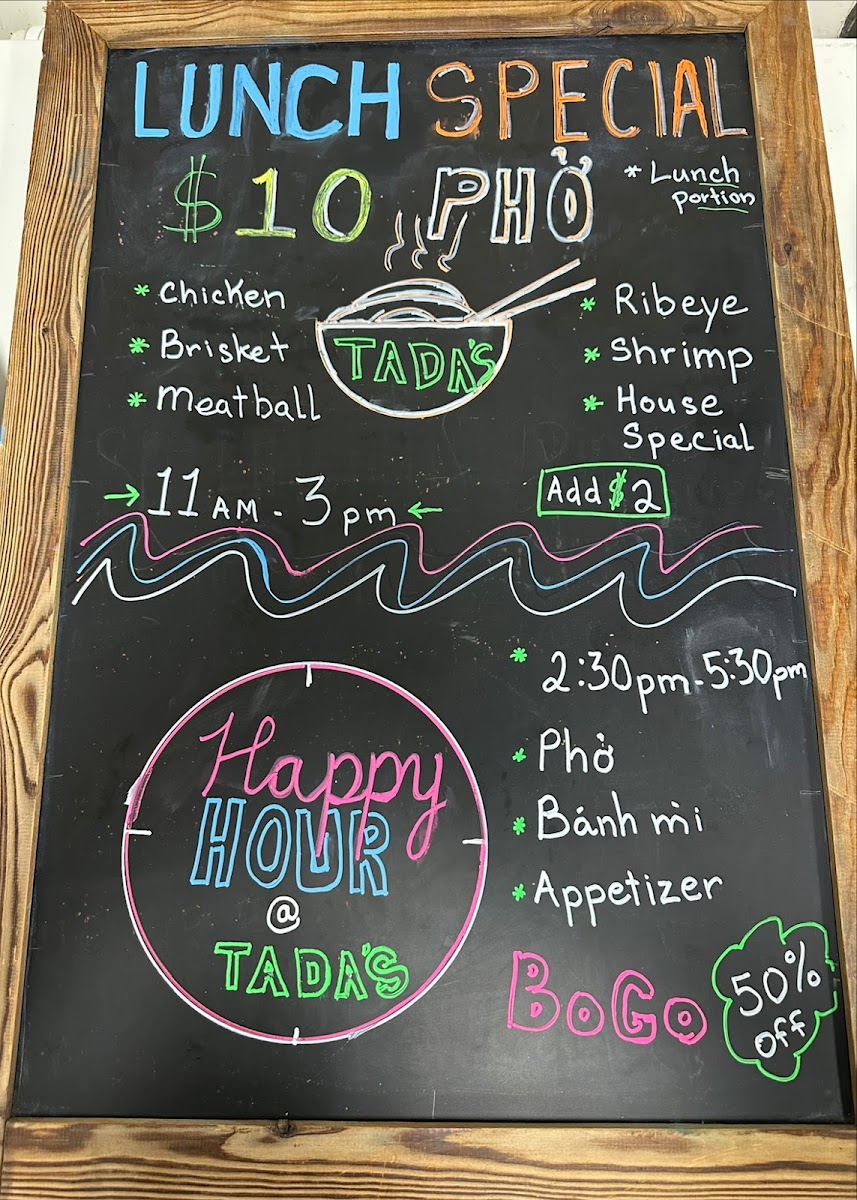 LUNCH SPECIAL
$10 PHỞ
* Lunch
portion
* Chicken
* Brisket
* Meatball
TADA'S
* Ribeye
* Shrimp
* House
Special
→ 11 AM - 3 pm ←
Add $2
Happy
HOUR
@
TADA'S
* 2:30pm - 5:30pm
* Phở
* Bánh mì
* Appetizer
BoGo
50%
off